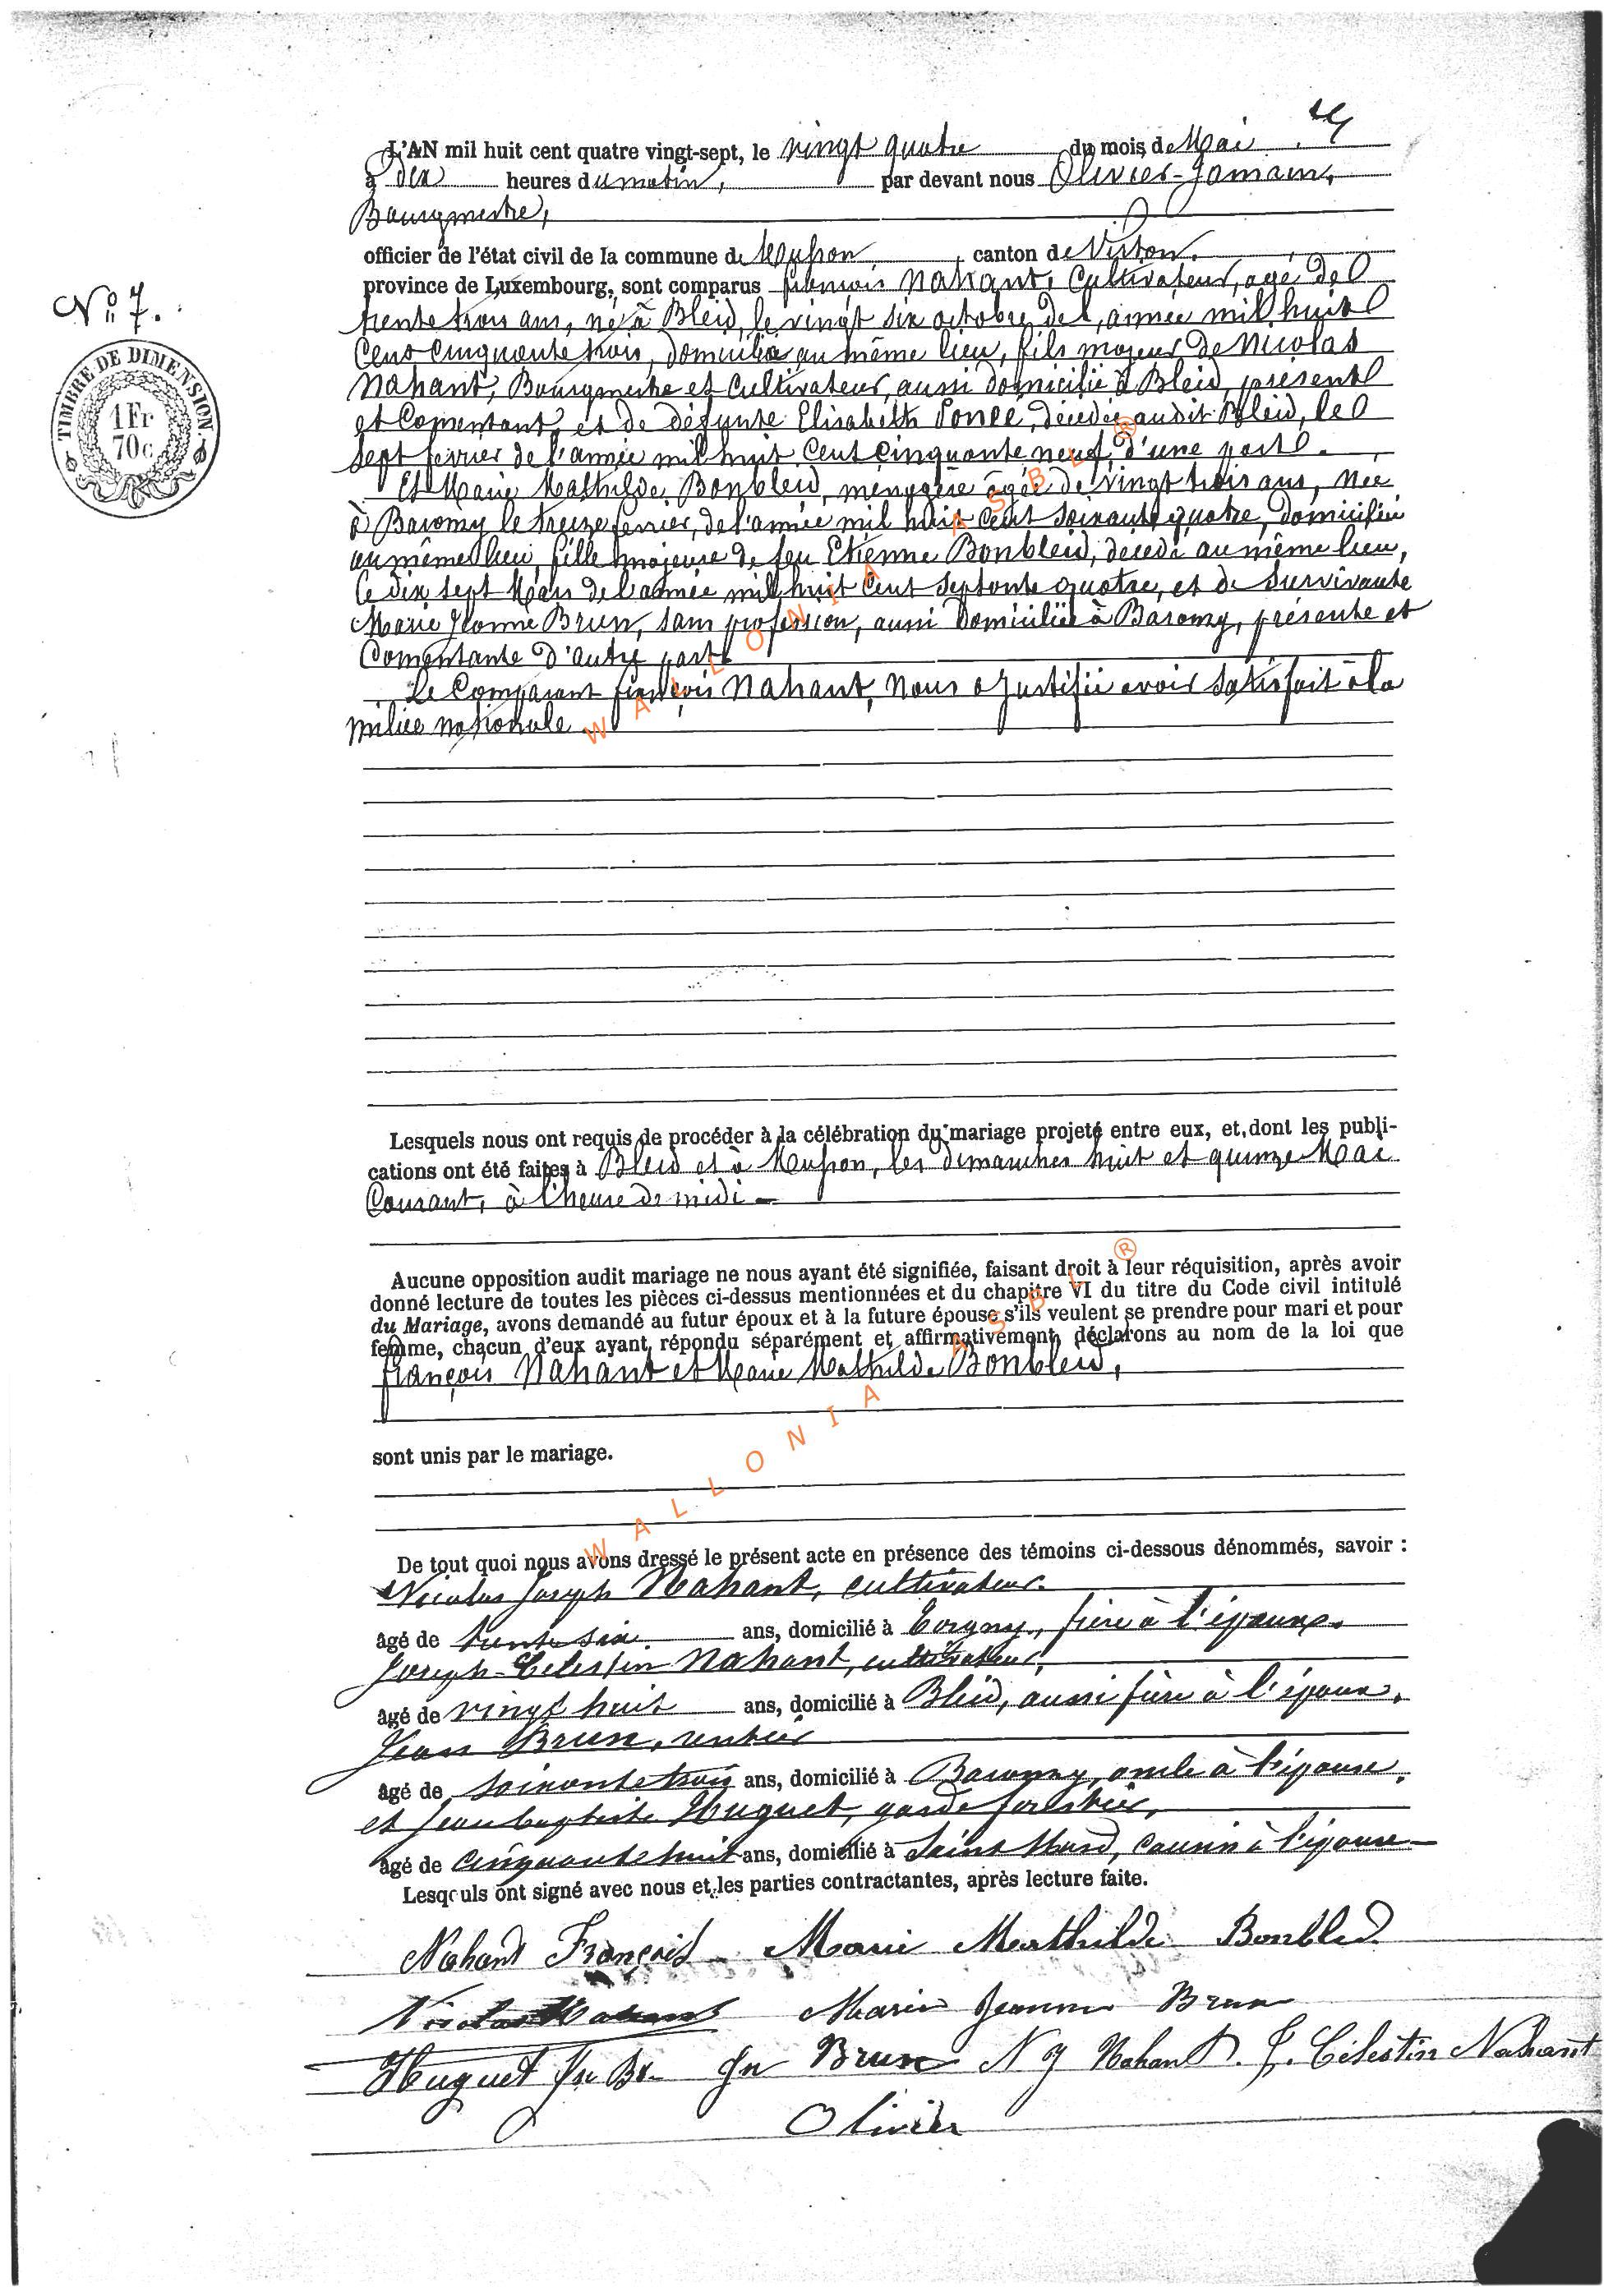 L'AN mil huit cent quatre vingt-sept, le vingt quatre du mois de Mai
à dix heures du matin, par devant nous Olivier-Jamain,
Bourgmestre,
officier de l'état civil de la commune de Musson, canton de Virton,
province de Luxembourg, sont comparus françois Nahant, Cultivateur, agé de
trente trois ans, né à Bleid, le vingt six octobre de l'année mil huit
Cent Cinquante trois, domicilié au même lieu, fils majeur de Nicolas
Nahant, Bourgmestre et Cultivateur, aussi domicilié à Bleid, présent
et Consentant, et de défunte Elisabeth Poncé, décédée audit Bleid, le
sept fevrier de l'année mil huit Cent Cinquante neuf, d'une part.
Et Marie Mathilde Bonbleid, ménagère agée de vingt trois ans, née
à Baromzy le treize fevrier, de l'année mil huit cent soixante quatre, domiciliée
au même lieu, fille majeure de feu Etienne Bonbleid, décédé au même lieu,
le dix sept Mars de l'année mil huit Cent septante quatre, et de survivante
Marie Jeanne Brun, sans profession, aussi domiciliée à Baromzy, présente et
Consentante d'autre part.
Le Comparant françois Nahant, Nous a justifié avoir satisfait à la
milice nationale.
No 7.
TIMBRE DE DIMENSION
1 Fr
70c
Lesquels nous ont requis de procéder à la célébration du mariage projeté entre eux, et dont les publi-
cations ont été faites à Bleid et à Musson, les dimanches huit et quinze Mai
Courant, à l'heure de midi -
Aucune opposition audit mariage ne nous ayant été signifiée, faisant droit à leur réquisition, après avoir
donné lecture de toutes les pièces ci-dessus mentionnées et du chapitre VI du titre du Code civil intitulé
du Mariage, avons demandé au futur époux et à la future épouse s'ils veulent se prendre pour mari et pour
femme, chacun d'eux ayant répondu séparément et affirmativement, déclarons au nom de la loi que
françois Nahant et Marie Mathilde Bonbleid,
sont unis par le mariage.
De tout quoi nous avons dressé le présent acte en présence des témoins ci-dessous dénommés, savoir :
Nicolas Joseph Nahant, cultivateur.
âgé de trente six ans, domicilié à Torgny, frère à l'époux.
Joseph-Celestin Nahant, cultivateur,
âgé de vingt huit ans, domicilié à Bleid, aussi frère à l'époux,
Jean Brun, rentier
âgé de soixante trois ans, domicilié à Baromzy, oncle à l'épouse,
et Jean baptiste Huguet, garde forestier,
âgé de cinquante huit ans, domicilié à Saint Mard, cousin à l'épouse
Lesquels ont signé avec nous et les parties contractantes, après lecture faite.
Nahant François Marie Mathilde Bonbled
Nicolas Nahant Marie Jeanne Brun
Huguet Jn Bt. Jn Brun N J Nahant. J. Célestin Nahant
Olivier
WALLONIA ASBL ®
WALLONIA ASBL ®